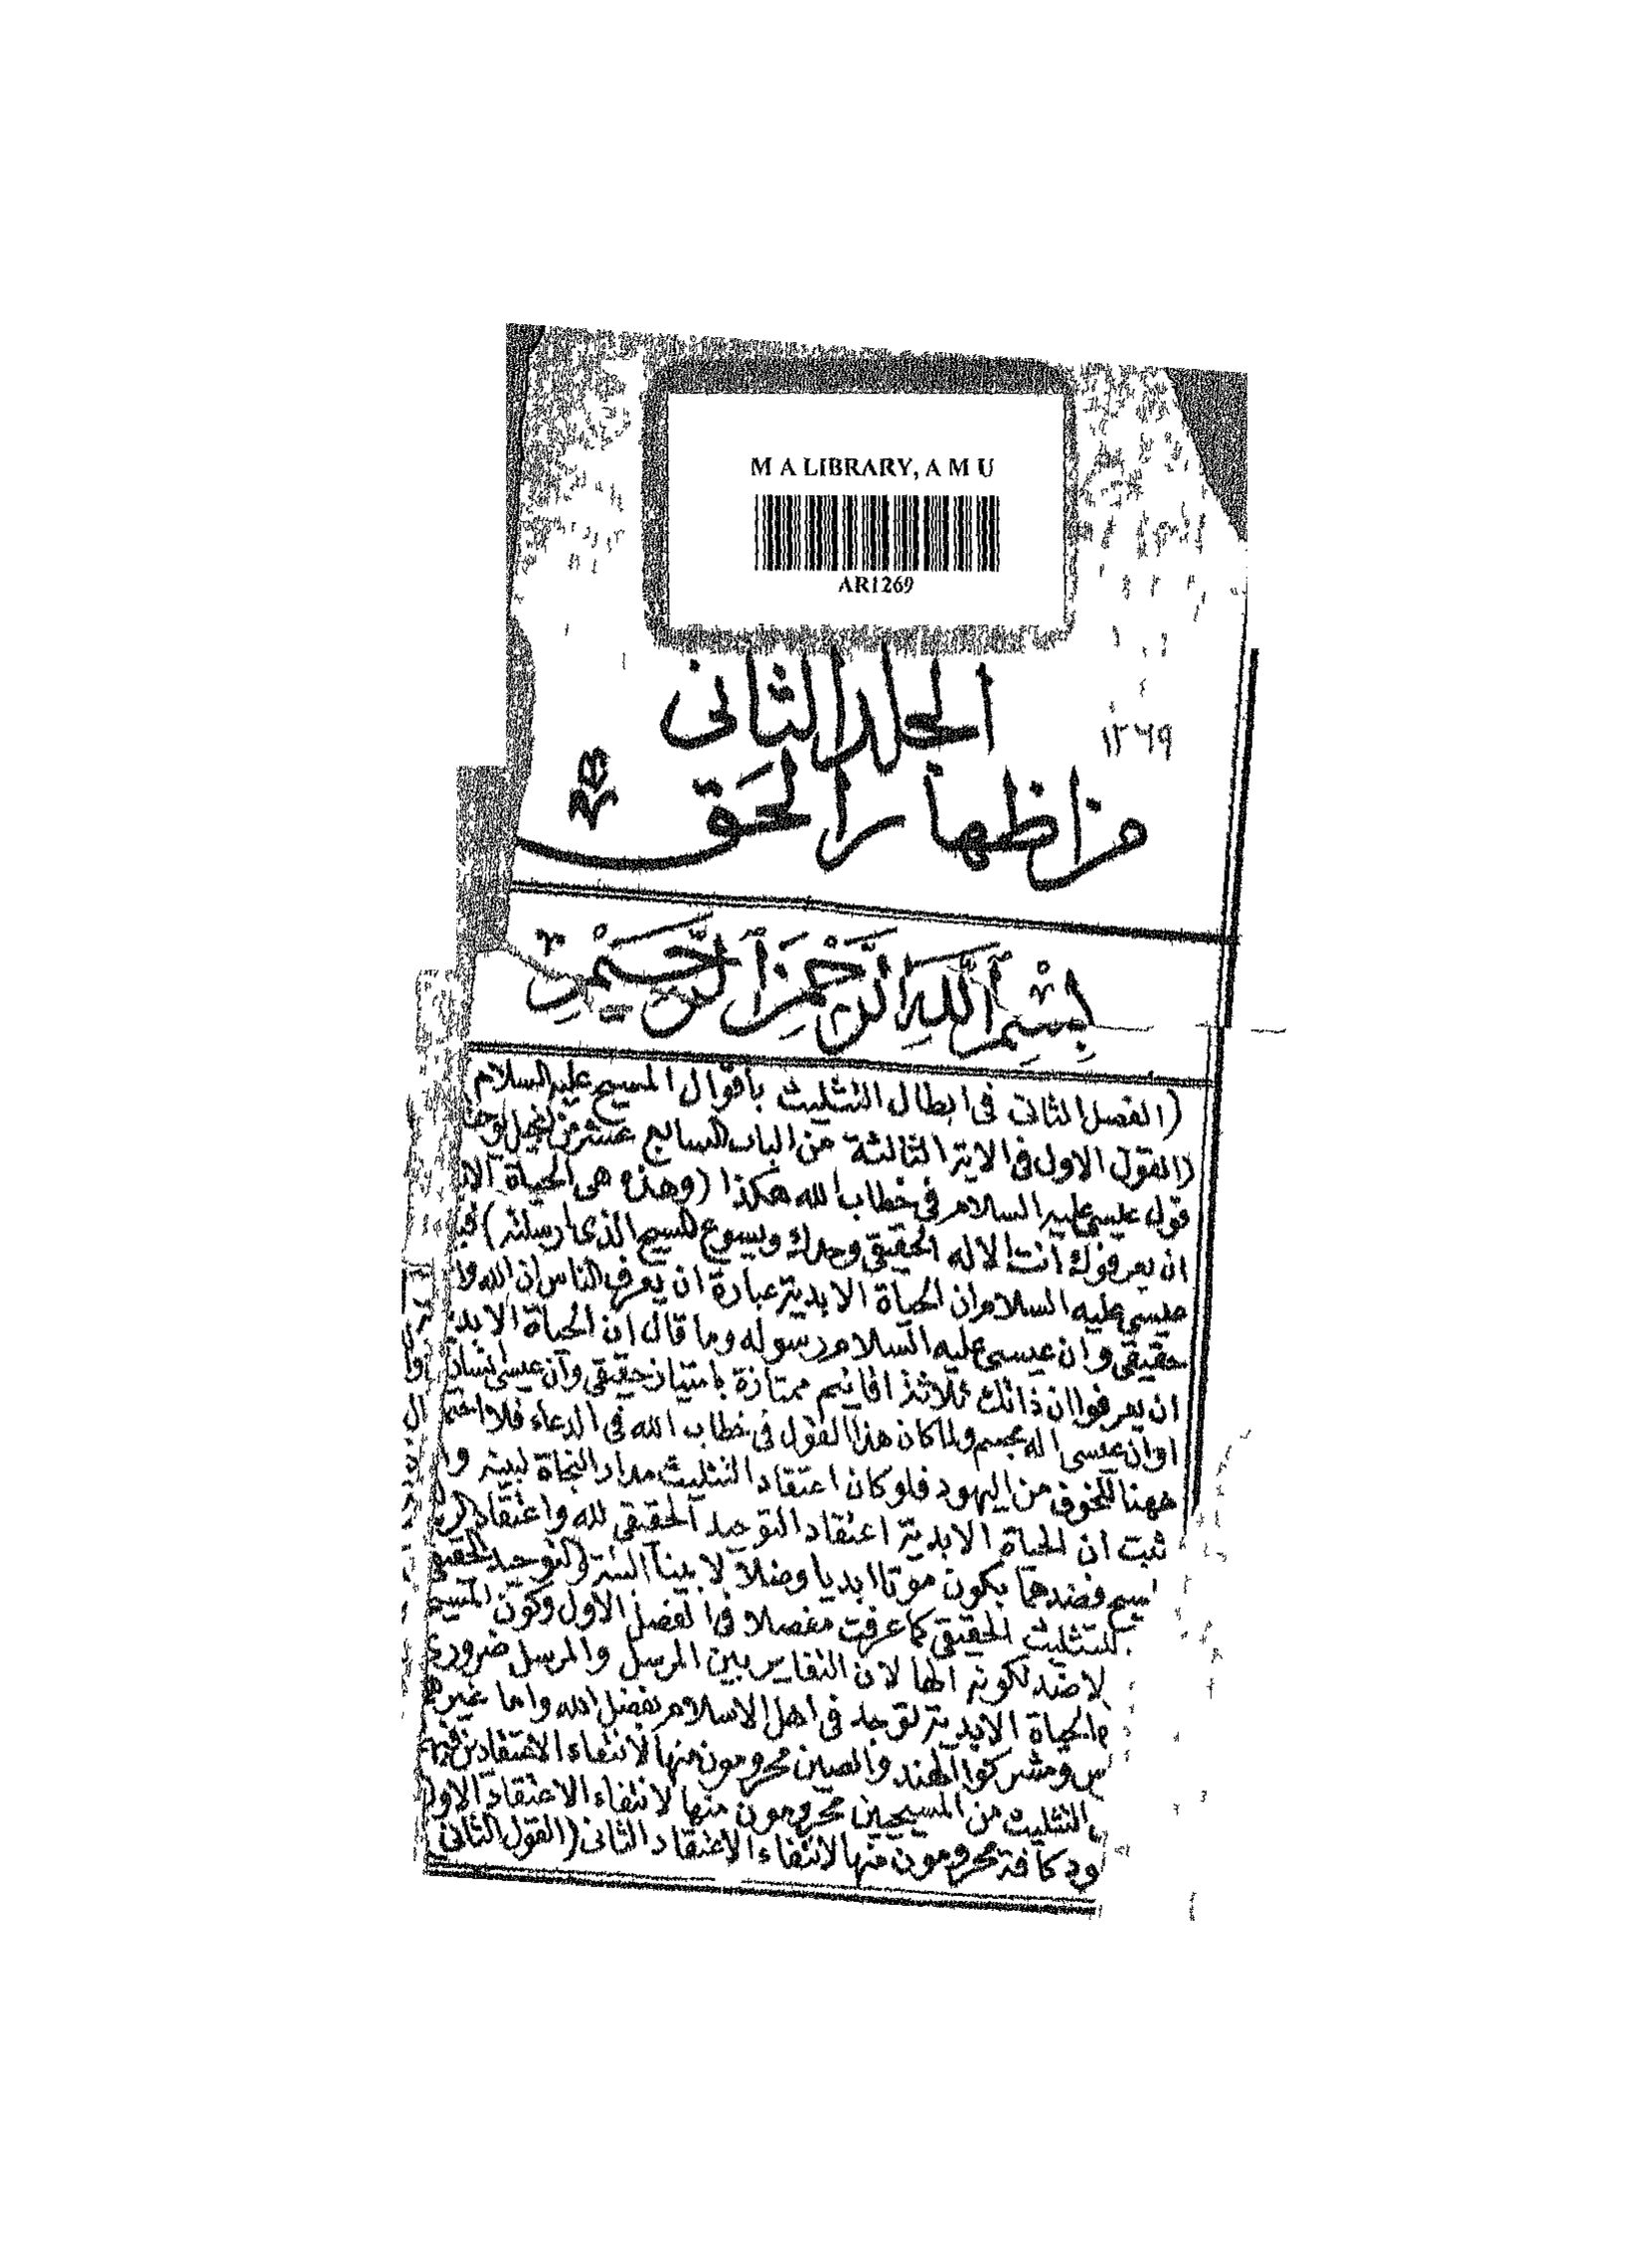 M A LIBRARY, A M U
AR1269
الجلد الثانى
١٢٦٩
من اظهار الحق
بسم الله الرحمن الرحيم
(الفصل الثانى فى ابطال التثليث باقوال المسيح عليه السلام
(القول الاول) فى الاية الثالثة من الباب السابع عشر من انجيل يوحنا
قول عيسى عليه السلام فى خطاب الله هكذا (وهذه هى الحياة الابد
ان يعرفوك انت الاله الحقيقى وحدك ويسوع المسيح الذى ارسلته) فبا
عيسى عليه السلام ان الحياة الابدية عبارة ان يعرف الناس ان الله وا
حقيقى وان عيسى عليه السلام رسوله وما قال ان الحياة الابد
ان يعرفوا ان ذاتك ثلاثة اقانيم ممتازة بامتياز حقيقى وان عيسى انسان وا
او ان عيسى اله مجسم ولما كان هذا القول فى خطاب الله فى الدعاء فلا احتمال
ههنا للخوف من اليهود فلو كان اعتقاد التثليث مدار النجاة لبينه وا
ثبت ان الحياة الابدية اعتقاد التوحيد الحقيقى لله واعتقاد الر
سيح فضدهما يكون موتا ابديا وضلالا بينا البتة والتوحيد الحقيقى
للتثليث الحقيقى كما عرفت مفصلا فى الفصل الاول وكون المسيح
لا ضد لكونه الها لان التغاير بين المرسل والمرسل ضرورى
الحياة الابدية توجد فى اهل الاسلام بفضل الله واما غيرهم
س ومشركوا الهند والصين محرومون منها لانتفاء الاعتقادين فيهم
التثليث من المسيحيين محرومون منها لانتفاء الاعتقاد الاول
ود كافة محرومون منها لانتفاء الاعتقاد الثانى (القول الثانى)